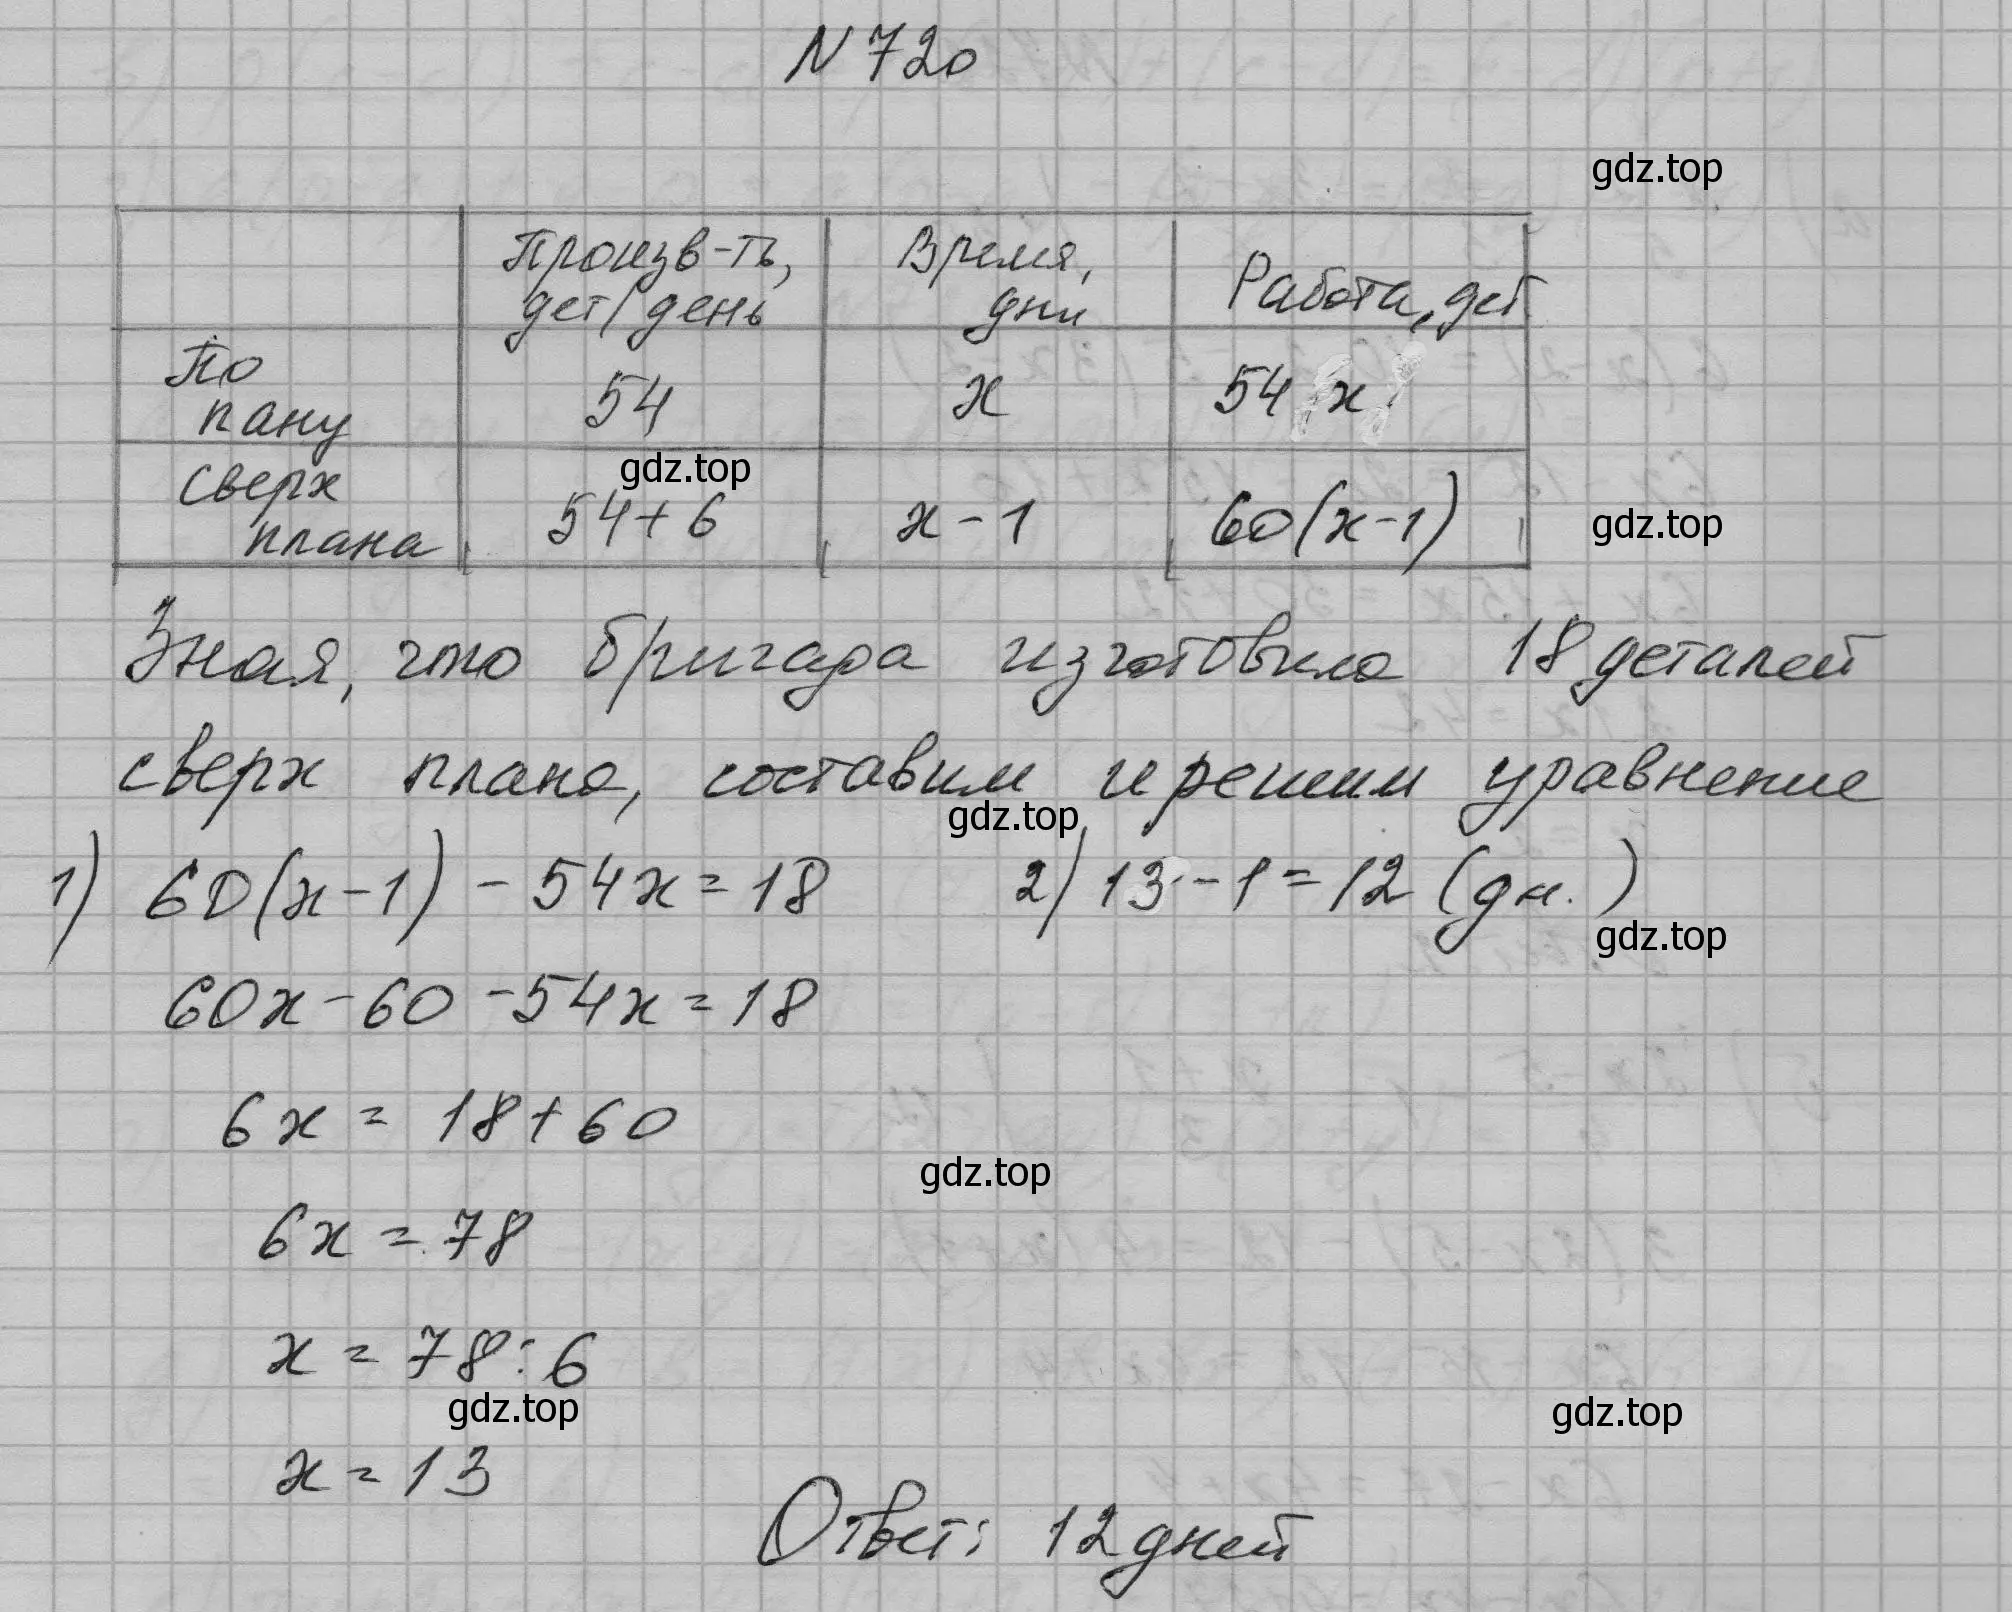 N 720
gdz.top
Произв-ть, дет/день
Время, дни
Работа, дет
По пану
54
x
54 x
gdz.top
сверх плана
54+6
x-1
60(x-1)
gdz.top
Зная, что бригада изготовила 18 деталей
сверх плана, составим и решим уравнение
gdz.top
1) 60(x-1) - 54x = 18
2) 13 - 1 = 12 (дн.)
gdz.top
60x - 60 - 54x = 18
6x = 18 + 60
gdz.top
6x = 78
x = 78 : 6
gdz.top
gdz.top
x = 13
Ответ: 12 дней